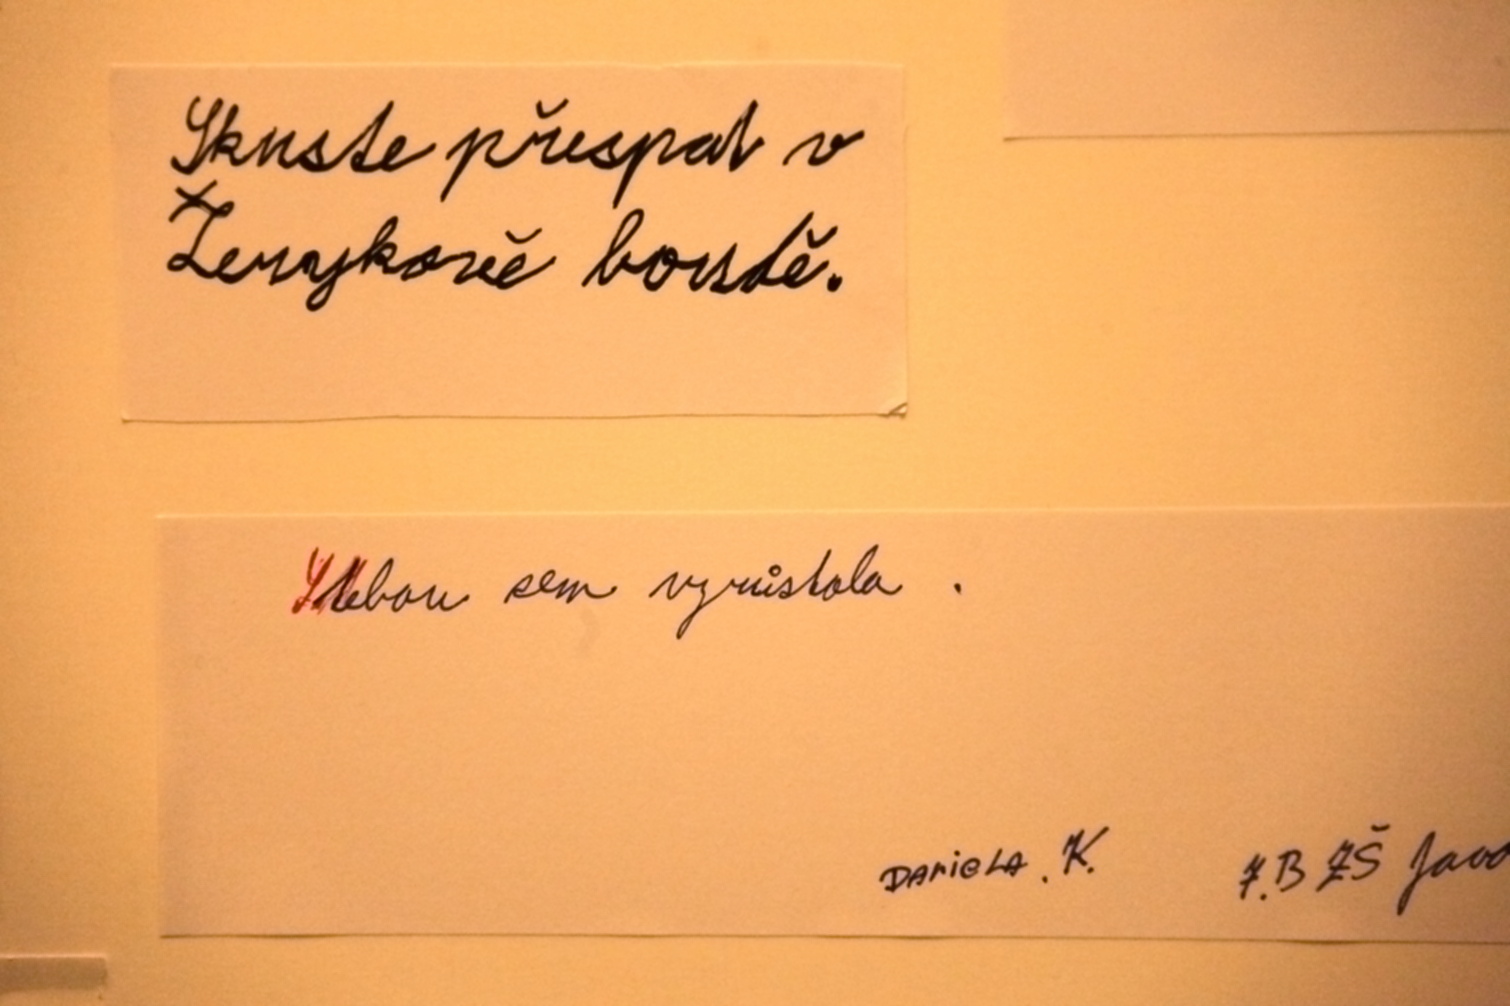 Skuste přespat v
Ženykově boudě.
Stebou sem vyrůstala .
Daniela . K. 7.B ZŠ Javo